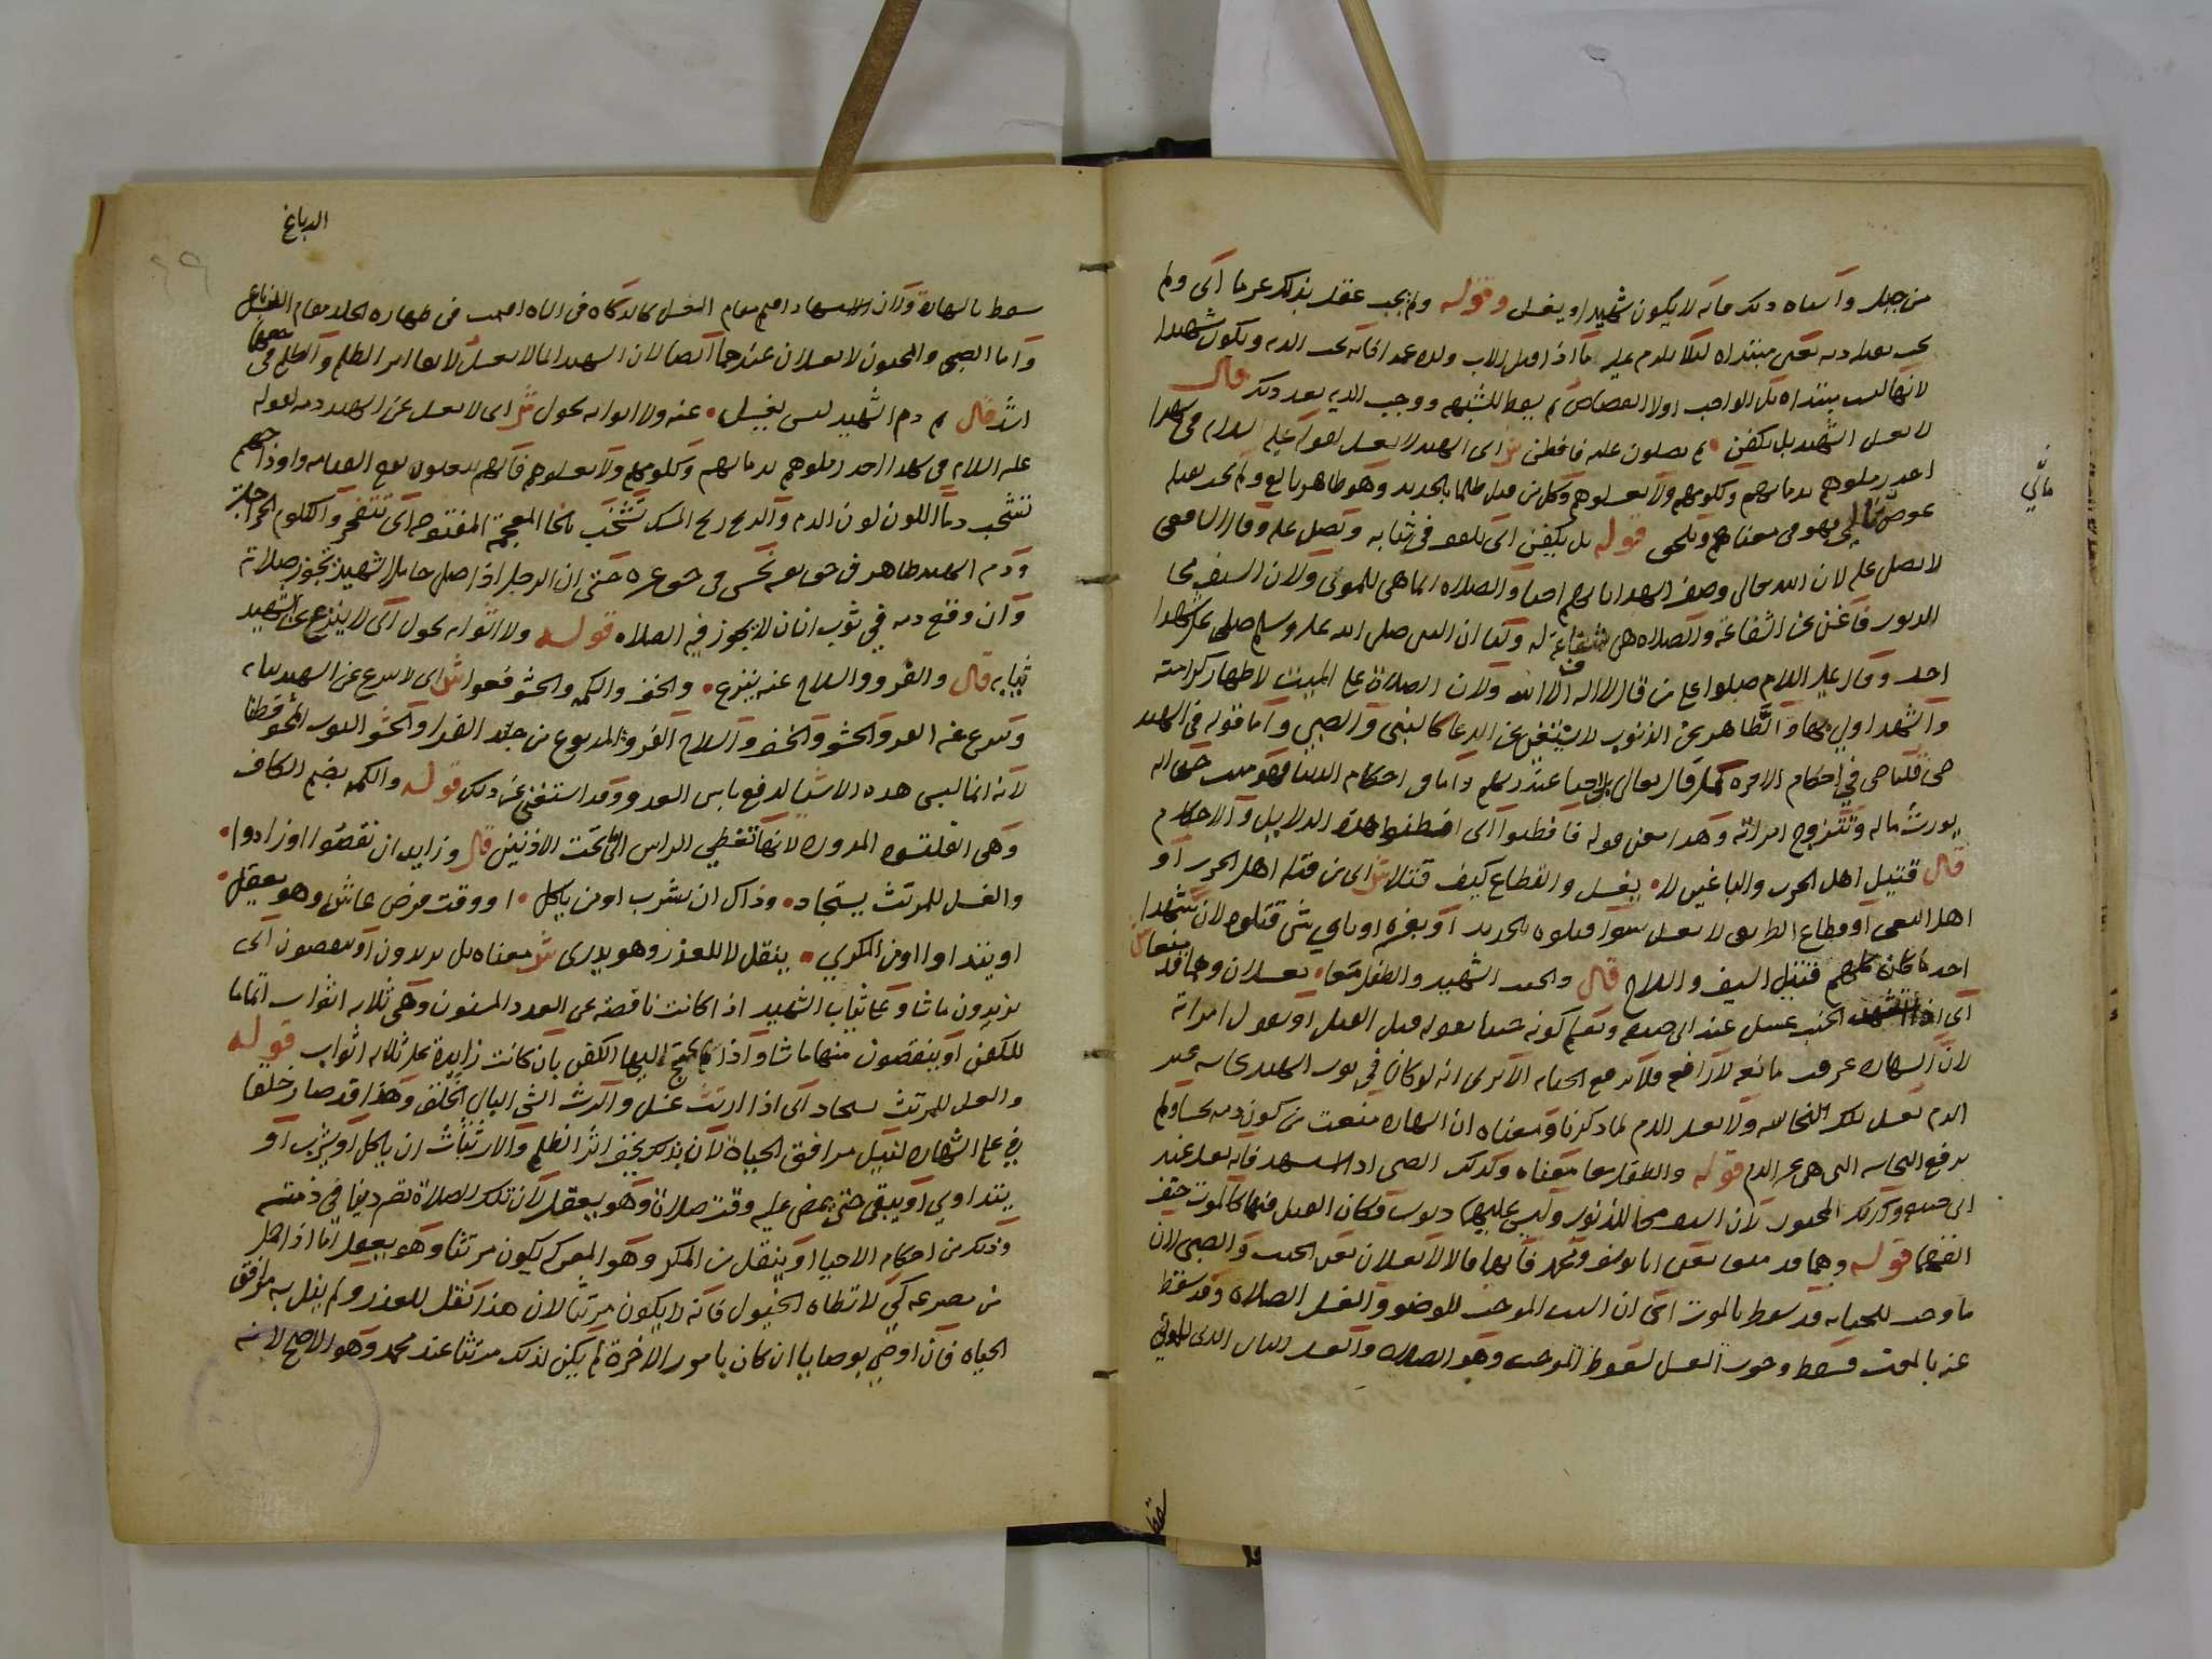 من جبل واشباه ذلك فانه لا يكون شهيدا ويغسل وقوله ولم يجب عقد بذلك عرما اى ولم
يجب بقتله دية يعنى مبتداه لئلا يلزم عليه ما اذا قتل الاب ولده عمدا فانه تجب الدية ويكون شهيدا
لانها ليست مبتداه بل الواجب اولا القصاص ثم يسقط للشبهه ووجب الديه بعد ذلك قال
لا يغسل الشهيد بل يكفن ثم يصلون عليه فافطن ش اى الشهيد لا يغسل لقوله عليه السلام فى شهدا
احد زملوهم بدمائهم وكلومهم ولا تغسلوهم وكل من قتل ظلما بالحديد وهو طاهر بالغ ولم يجب بقتله
عوض مالى فهو فى معناهم ويلحق قوله بل يكفن اى يلف فى ثيابه ويصلى عليه وقال الشافعى
مالي
لا يصلى عليه لان الله تعالى وصف الشهدا بانهم احيا والصلاه انما هى للموتى ولان السيف محا
الذنوب فاغنى عن الشفاعة والصلاه هى شفاعة له ولنا ان النبى صلى الله عليه وسلم صلى على شهدا
احد وقال عليه السلام صلوا على من قال لا اله الا الله ولان الصلاة على الميت لاظهار كرامته
والشهيد اولى بها والطاهر عن الذنوب لا يستغنى عن الدعا كالنبى والصبي واما قوله فى الشهيد
حى قلنا حى في احكام الاخره كما قال تعالى بل احيا عند ربهم واما فى احكام الدنيا فهو ميت حتى انه
يورث ماله وتتزوج امراته وهذا معنى قوله فافطنوا اى افطنوا هذه الدلايل والاحكام
قال قتيل اهل الحرب والباغين لا يغسل والقطاع كيف قتلا ش اى من قتله اهل الحرب او
اهل البغى او قطاع الطريق لا يغسل سوا قتلوه بالحديد او بغيره او باي شى قتلوه لان شهدا
احد ما كان كلهم قتيل السيف والسلاح قال والجنب الشهيد والطفل معا يغسلان وهما قد منعا ش
اى الجنب يغسل عند ابى حنيفه ويعلم كونه جنبا بقوله قبل القتل او بقول امراته
لان الشهاده عرفت مانعة لا رافعه فلا ترفع الجنابه الا ترى انه لو كان في ثوب الشهيد نجاسه غير
الدم تغسل تلك النجاسه ولا يغسل الدم لما ذكرنا ومعناه ان الشهاده منعت من كون دمه نجسا ولم
ترفع النجاسه التى هى غير الدم قوله والطفل معا معناه وكذلك الصبى اذا استشهد فانه يغسل عند
ابى حنيفه وكذلك المجنون لان السيف محا للذنوب وليس عليهما ذنوب فكان القتل فيهما كالموت حتف
انفهما قوله وهما قد منعا يعنى ابا يوسف ومحمد فانهما قالا لا يغسلان يعنى الجنب والصبى لان
ما وجب للجنابه قد سقط بالموت اى ان السبب الموجب للوضو والغسل الصلاه وقد سقط
عنه بالموت فسقط وجوب الغسل لسقوط الموجب وهو الصلاه والغسل الثانى الذى للموتى
سقط
الدباغ
سقط بالشهادة ولان الاستشهاد اقيم مقام الغسل كالذكاه فى الشاه اقيمت فى طهاره الجلد مقام الدباغ
واما الصبى والمجنون لا يغسلان عندهما ايضا لان الشهيد انما لا يغسل لابقا اثر الظلم والظلم فى حقهما
اشد قال ثم دم الشهيد ليس يغسل عنه ولا اثوابه تحول ش اى لا يغسل عن الشهيد دمه لقوله
عليه السلام فى شهدا احد زملوهم بدمائهم وكلومهم ولا تغسلوهم فانهم يبعثون يوم القيامه واوداجهم
تشخب دما اللون لون الدم والريح ريح المسك تشخب بالخا المعجمة المفتوحه اى تنفجر والكلوم الجراحات
ودم الشهيد طاهر فى حق نفسه نجس فى حق غيره حتى ان الرجل اذا صلى حاملا لشهيد تجوز صلاته
وان وقع دمه في ثوب انسان لا يجوز فيه الصلاه قوله ولا اثوابه تحول اى لا ينزع عن الشهيد
ثيابه قال والفرو والسلاح عنه ينزع والخف والكمه والحشو فعوا ش اى لا ينزع عن الشهيد ثيابه
وينزع عنه الفرو والحشو والخف والسلاح الفرو المدبوغ من جلد الفرا والحشو الثوب المحشو قطنا
لانه انما لبس هذه الاشيا لدفع باس العدو وقد استغنى عن ذلك قوله والكمه بضم الكاف
وهى القلنسوه المدوره لانها تغطي الراس الى تحت الاذنين قال وزايد ان نقصوا او زادوا
والغسل للمرتث يستجاد وذاك ان يشرب او من ياكل او وقت فرض عاش وهو يعقل
او يتداوا او من المكري ينقل لا للعذر وهو يدرى ش معناه بل يزيدون او ينقصون اى
يزيدون ما شاوا على ثياب الشهيد اذا كانت ناقصة عن العدد المسنون وهى ثلاثه اثواب اتماما
للكفن او ينقصون منها ما شاوا اذا لم يحتج اليها الكفن بان كانت زايدة على ثلاثه اثواب قوله
والغسل للمرتث يستجاد اى اذا ارتث غسل والرث الشى البالى الخلق وهذا قد صار خلقا
في علم الشهاده لنيل مرافق الحياة لان بذلك يخف اثر الظلم والارتثاث ان ياكل او يشرب او
يتداوى او يبقى حتى يمضى عليه وقت صلاة وهو يعقل لان تلك الصلاة تصير دينا في ذمته
وذلك من احكام الاحيا او ينقل من المكر وهو المعرك يكون مرتثا وهو يعقل اما اذا حمل
من مصرعه كي لا تطاه الخيول فانه لا يكون مرتثا لان هذا نقل للعذر ولم ينل به مرافق
الحياه فان اوصى بوصايا ان كان بامور الاخرة لم يكن لذلك مرتثا عند محمد وهو الاصح لانه